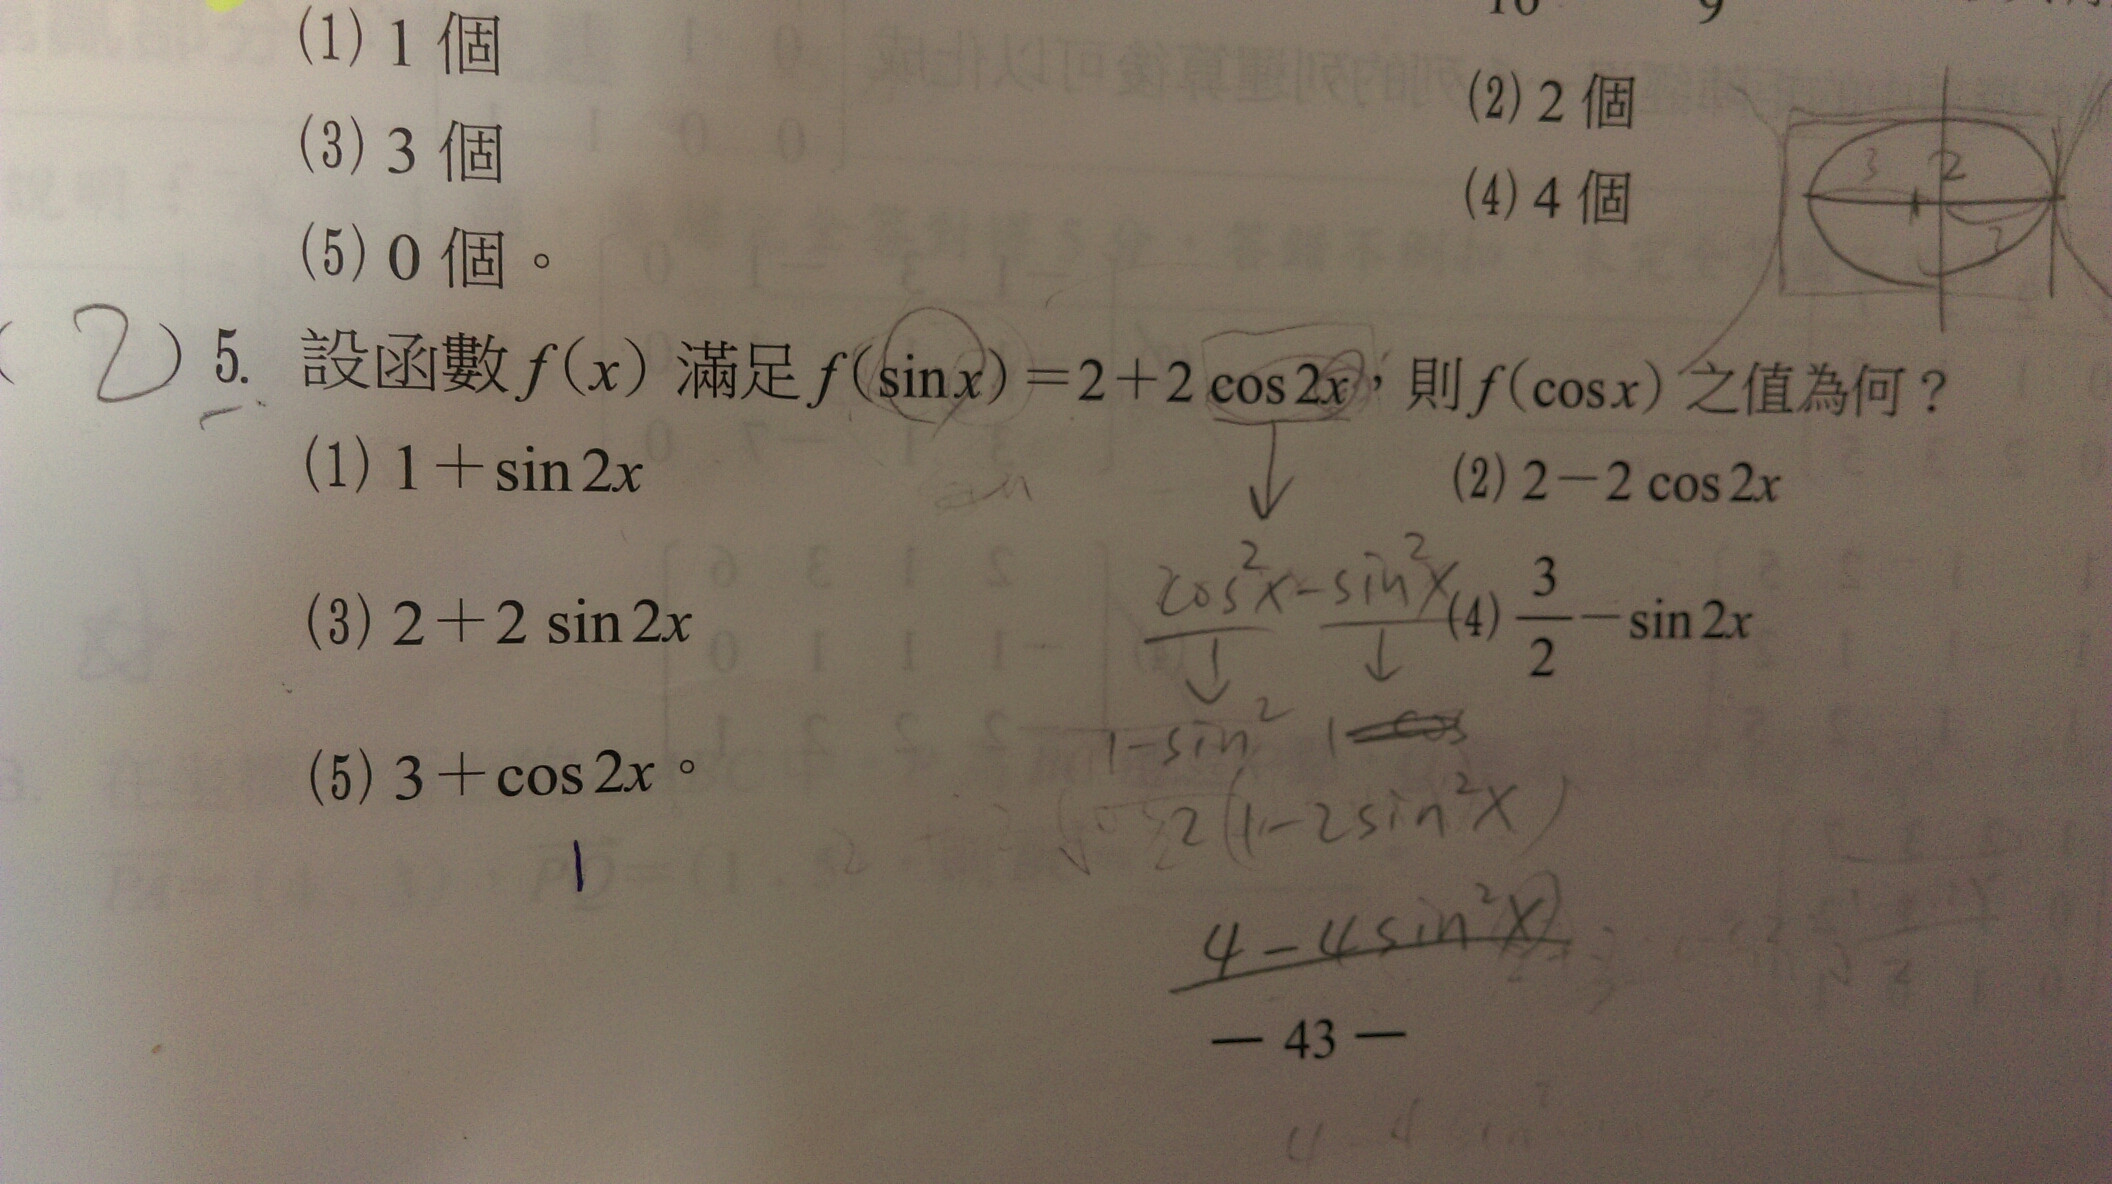 (1) 1 個
(2) 2 個
(3) 3 個
(4) 4 個
(5) 0 個。
(2) 5. 設函數 f(x) 滿足 f(sin x)=2+2 cos 2x，則 f(cos x) 之值為何？
(1) 1+sin 2x
(2) 2-2 cos 2x
(3) 2+2 sin 2x
(4) 3/2-sin 2x
(5) 3+cos 2x。
cos²x-sin²x
1-sin² 1-cos
2(1-2sin²x)
4-4sin²x
— 43 —
4-4 sin²
3 2